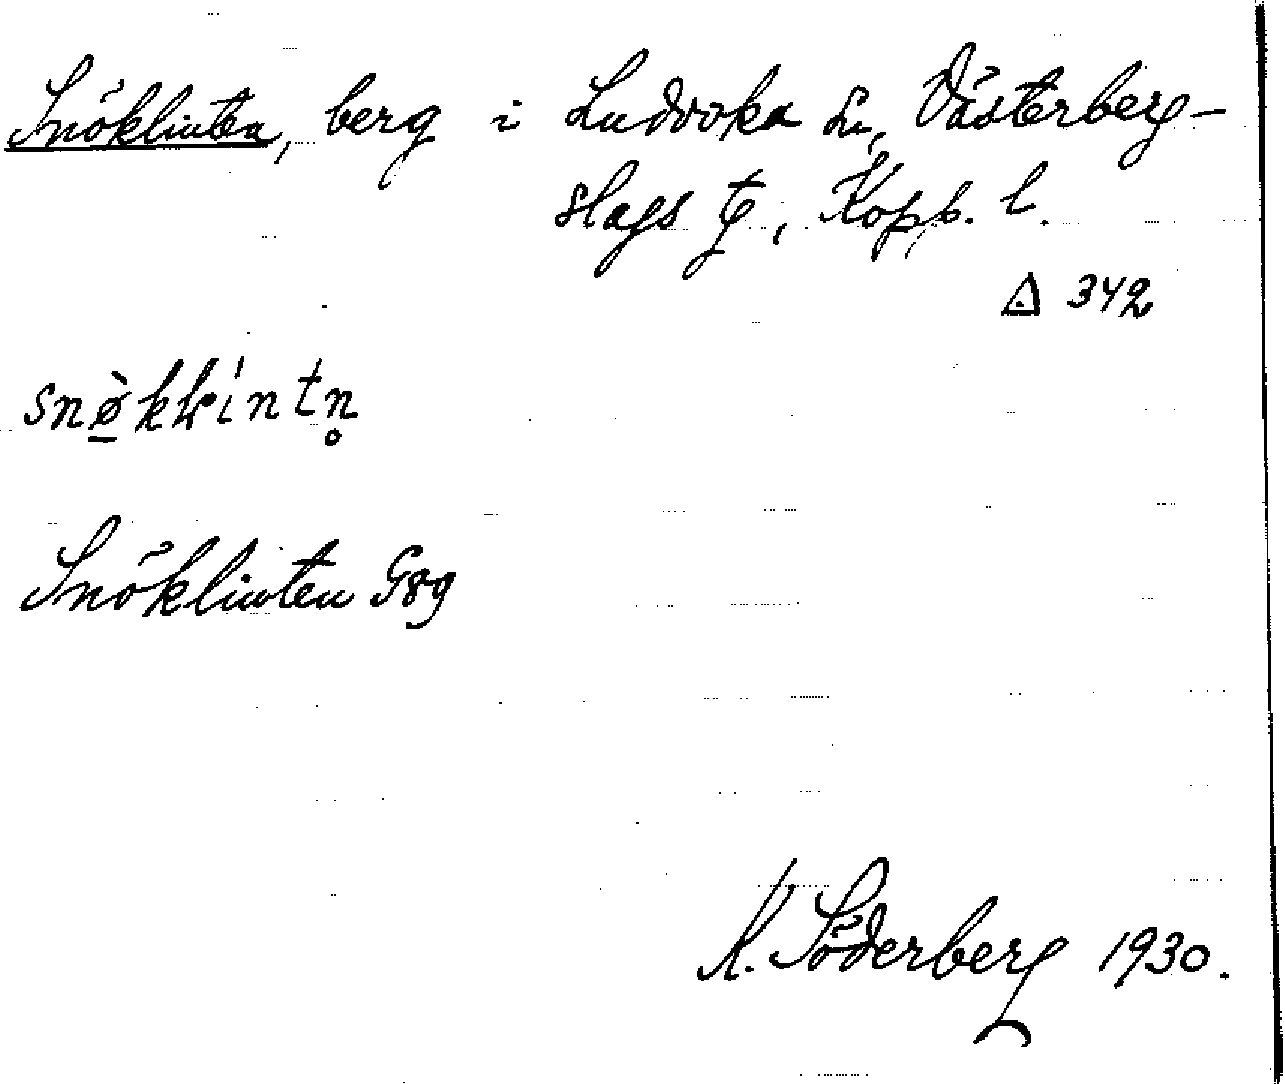 Snöklinten, berg i Ludvika sn, Västerberg-
slags tg, Kopp. l.
△ 342
Snöklinten G89
K. Söderberg 1930.